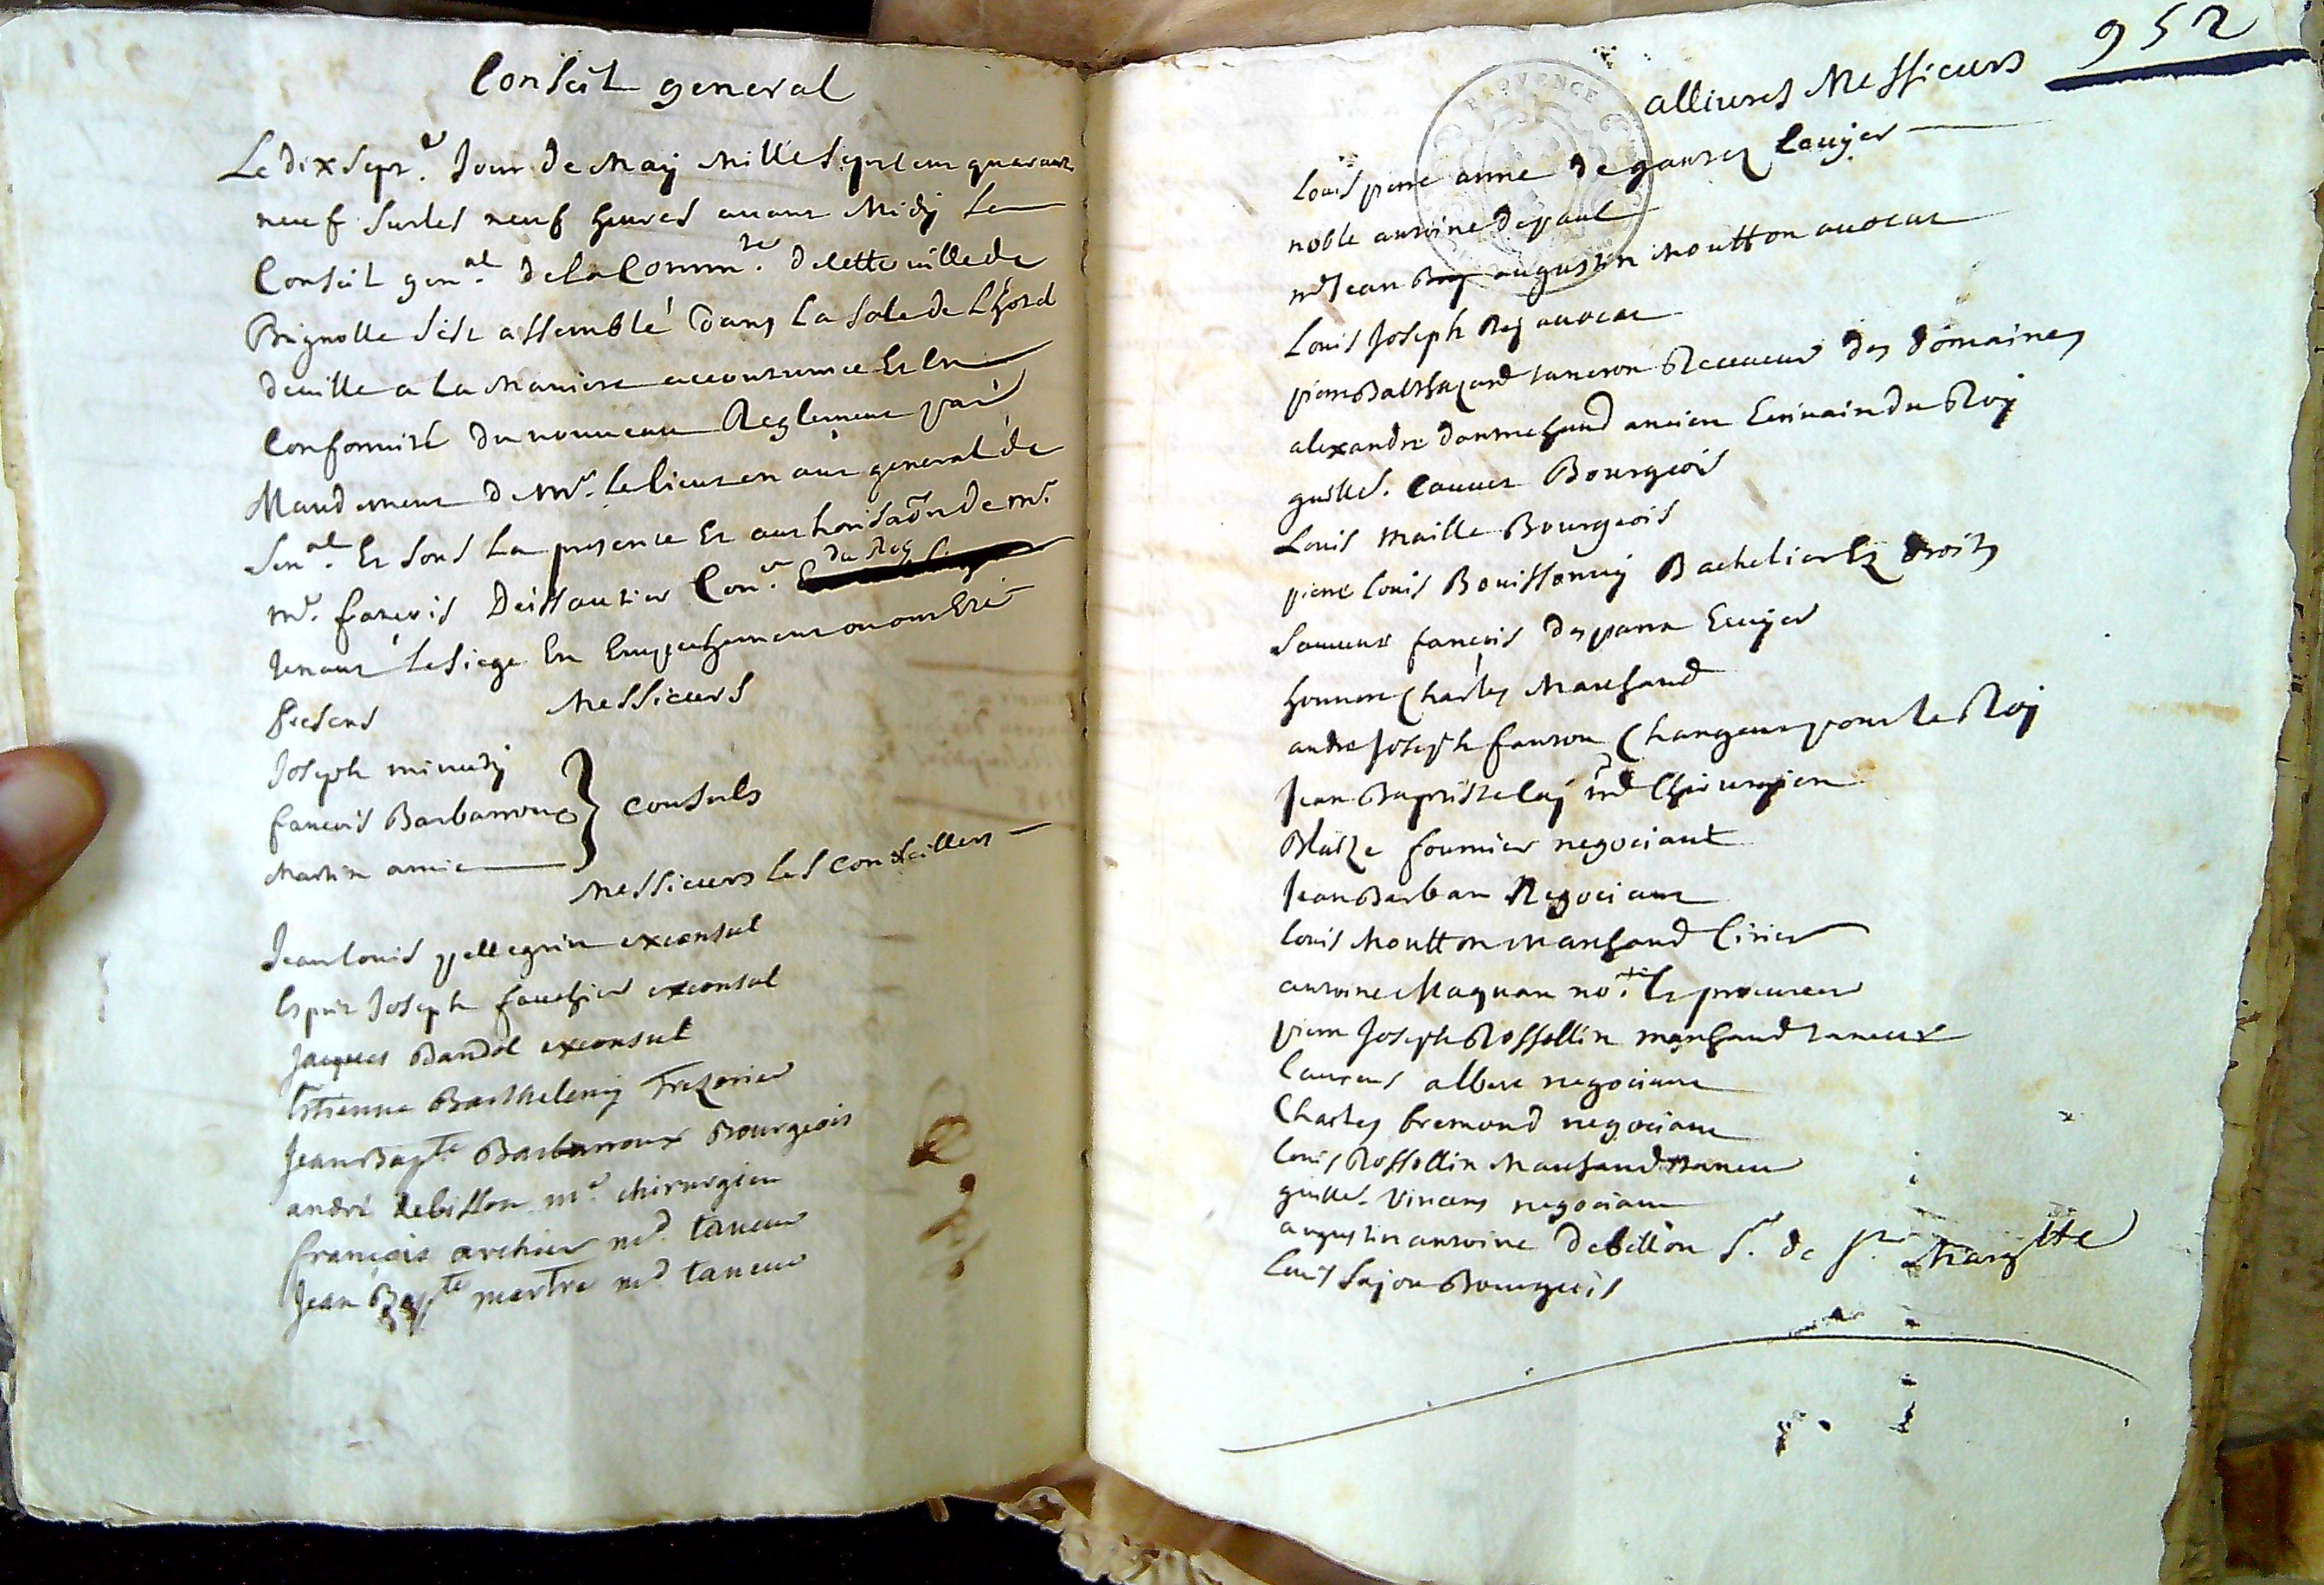 Conseil general
Le dix sept.e Jour de May mille sept cens quarante
neuf sur les neuf heures avant Midy Le
Conseil gen.al de la Comm.té de cette ville de
Brignolle s'est assemblé dans La sale de Lhotel
de ville a La Maniere accoutumée Et En
Conformité du nouveau Reglement par
Mandement de Mr. Le lieutenant general de
Sen.al Et sous La presence Et authorisaõn de mr.
mr. francois Deissautier Con.er du Roy
tenant le siege En Empechement
presens Messieurs
Joseph minuty
francois Barbarroux } consuls
Martin amic
Messieurs Les conseillers
Jean Louis pellegrin exconsul
Esprit Joseph fauchier exconsul
Jacques Bandol exconsul
Estienne Barthelemy Trezorier
Jean Bapte Barbarroux Bourgeois
andré debillon me. chirurgien
françois archier md. taneur
Jean Bapte martre md. taneur
952
allivres Messieurs
Louis pierre anne de gantez Ecuyer
noble antoine de paul
me Jean augustin Moutton avocat
Louis Joseph Rey avocat
pierre Balthazard taneron Receveur des domaines
alexandre ancien Ecrivain du Roy
guille. Cauvet Bourgeois
Louis Maille Bourgeois
pierre Louis Bouissonny Bachelier Ez droits
Sauveur francois desparra Ecuyer
honnoré Charles Marchand
andré Joseph fanton Changeur pour le Roy
Jean Baptiste Ley me Chirurgien
Blaize fournier negociant
Jean Barban Negociant
Louis Moutton Marchand Cirier
antoine Maquan no.re Et procureur
pierre Joseph Rossollin marchand taneur
Laurens albert negociant
Charles bremond negociant
Louis Rossollin Marchand taneur
guille. Vincens negociant
augustin antoine debillon Sr. de St
Louis Sajou Bourgeois